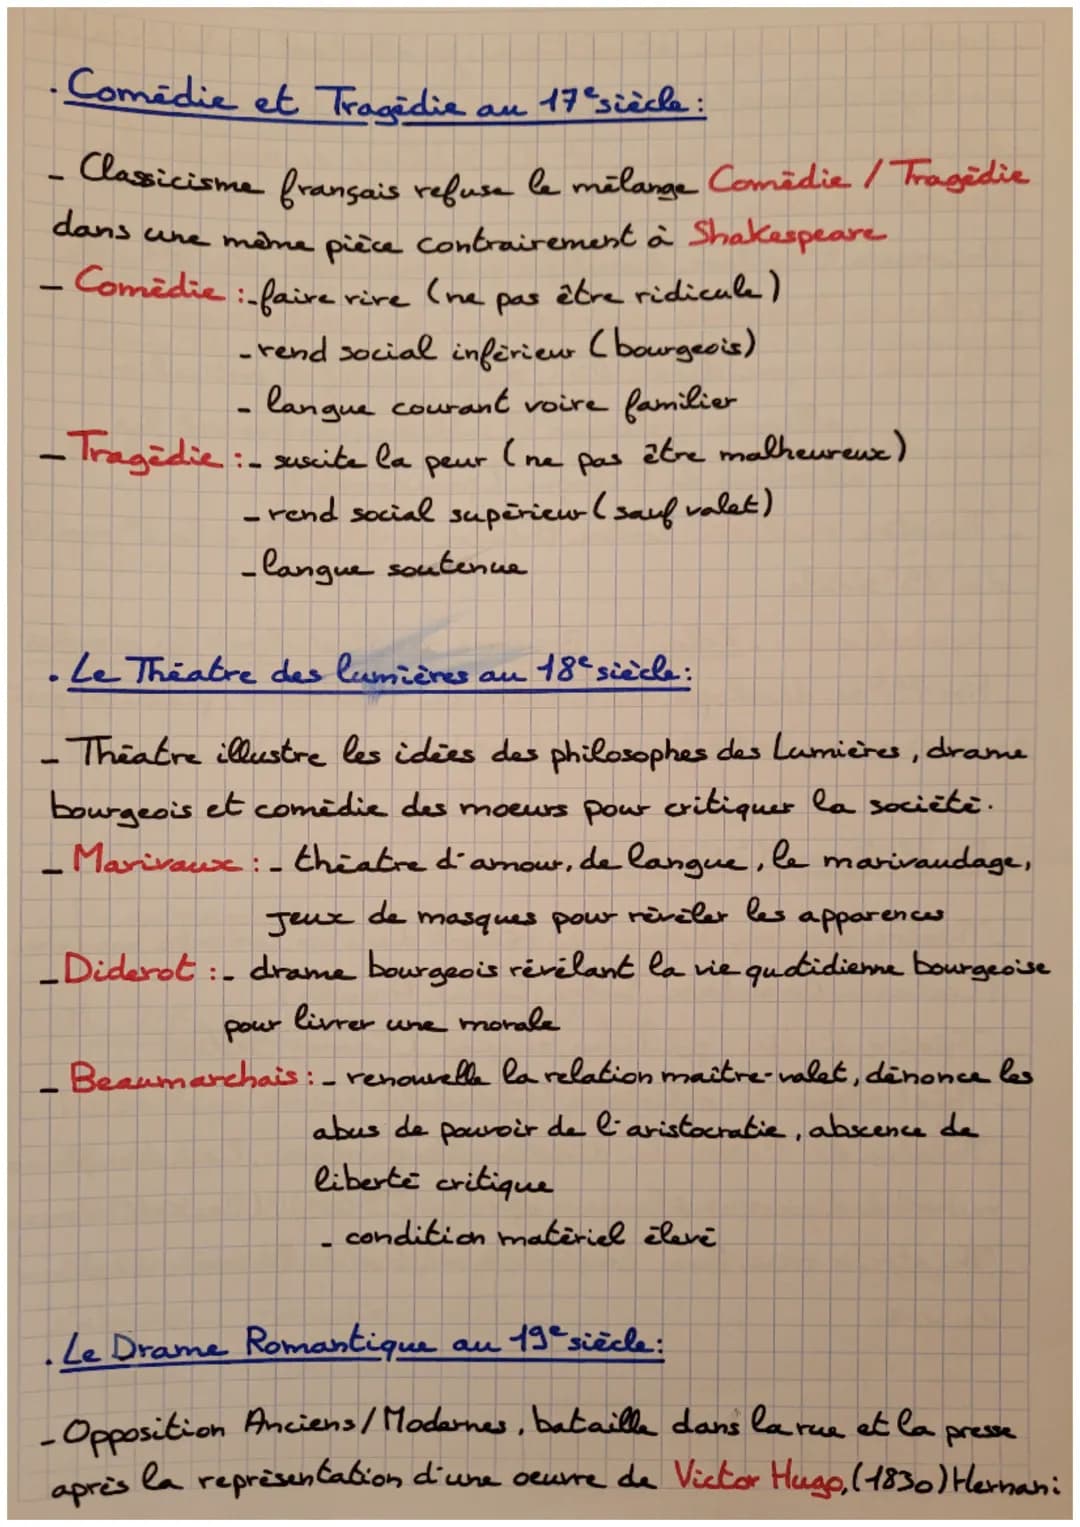 . Comédie et Tragédie au 17e siècle :
_ Classicisme français refuse le mélange Comédie / Tragédie
dans une même pièce contrairement à Shakespeare
_ Comédie : - faire rire (ne pas être ridicule)
- rend social inférieur (bourgeois)
- langue courant voire familier
_ Tragédie : - suscite la peur (ne pas être malheureux)
- rend social supérieur (sauf valet)
- langue soutenue
. Le Théatre des lumières au 18e siècle :
_ Théatre illustre les idées des philosophes des Lumières, drame
bourgeois et comédie des moeurs pour critiquer la société.
_ Marivaux : - théatre d'amour, de langue, le marivaudage,
Jeux de masques pour révéler les apparences
_ Diderot : - drame bourgeois révélant la vie quotidienne bourgeoise
pour livrer une morale
_ Beaumarchais : - renouvelle la relation maître-valet, dénonce les
abus de pouvoir de l'aristocratie, abscence de
liberté critique
- condition matériel élevé
. Le Drame Romantique au 19e siècle :
_ Opposition Anciens/Modernes, bataille dans la rue et la presse
après la représentation d'une oeuvre de Victor Hugo, (1830) Hernani